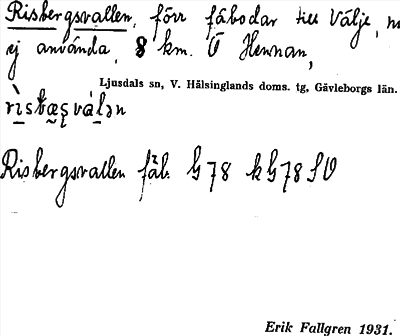 Risbergsvallen, förr fäbodar till Välje, nu
ej använda, 8 km. Ö Hennan,
Ljusdals sn, V. Hälsinglands doms. tg, Gävleborgs län.
Risbergsvallen fäb. G78 kG78 SV
Erik Fallgren 1931.